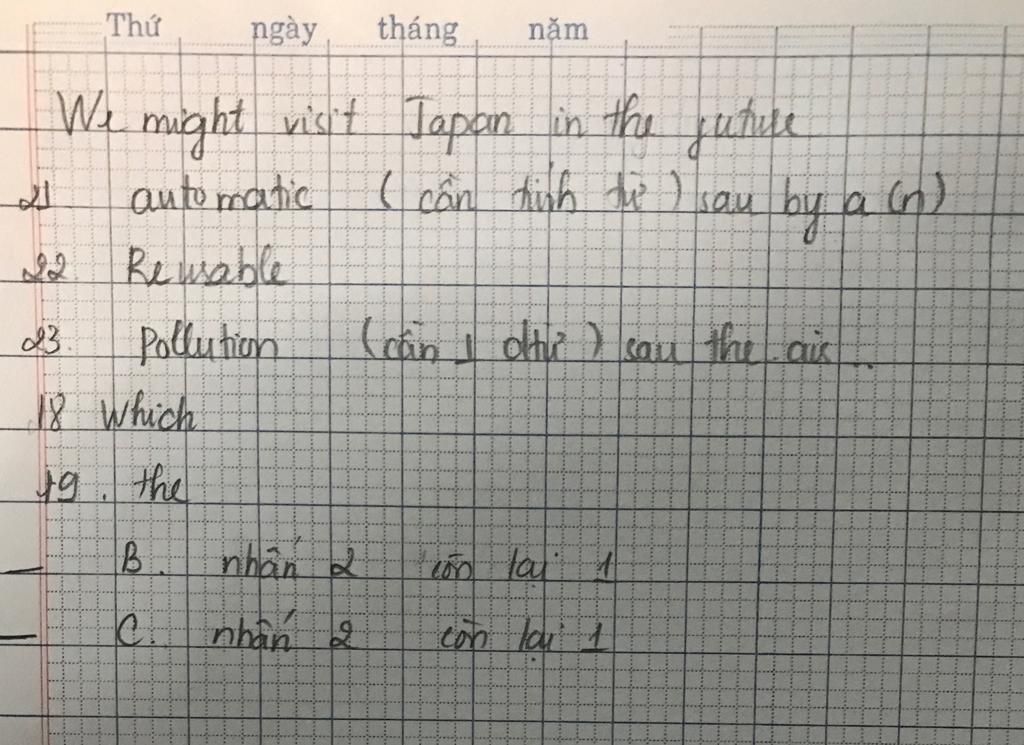 Thứ ngày tháng năm
We might visit Japan in the future
21 automatic (cần tính từ) sau by a (n)
22. Reusable
23. Pollution (cần 1 dtừ) sau the air...
18 Which
19. the
B. nhấn 2 còn lại 1
C. nhấn 2 còn lại 1